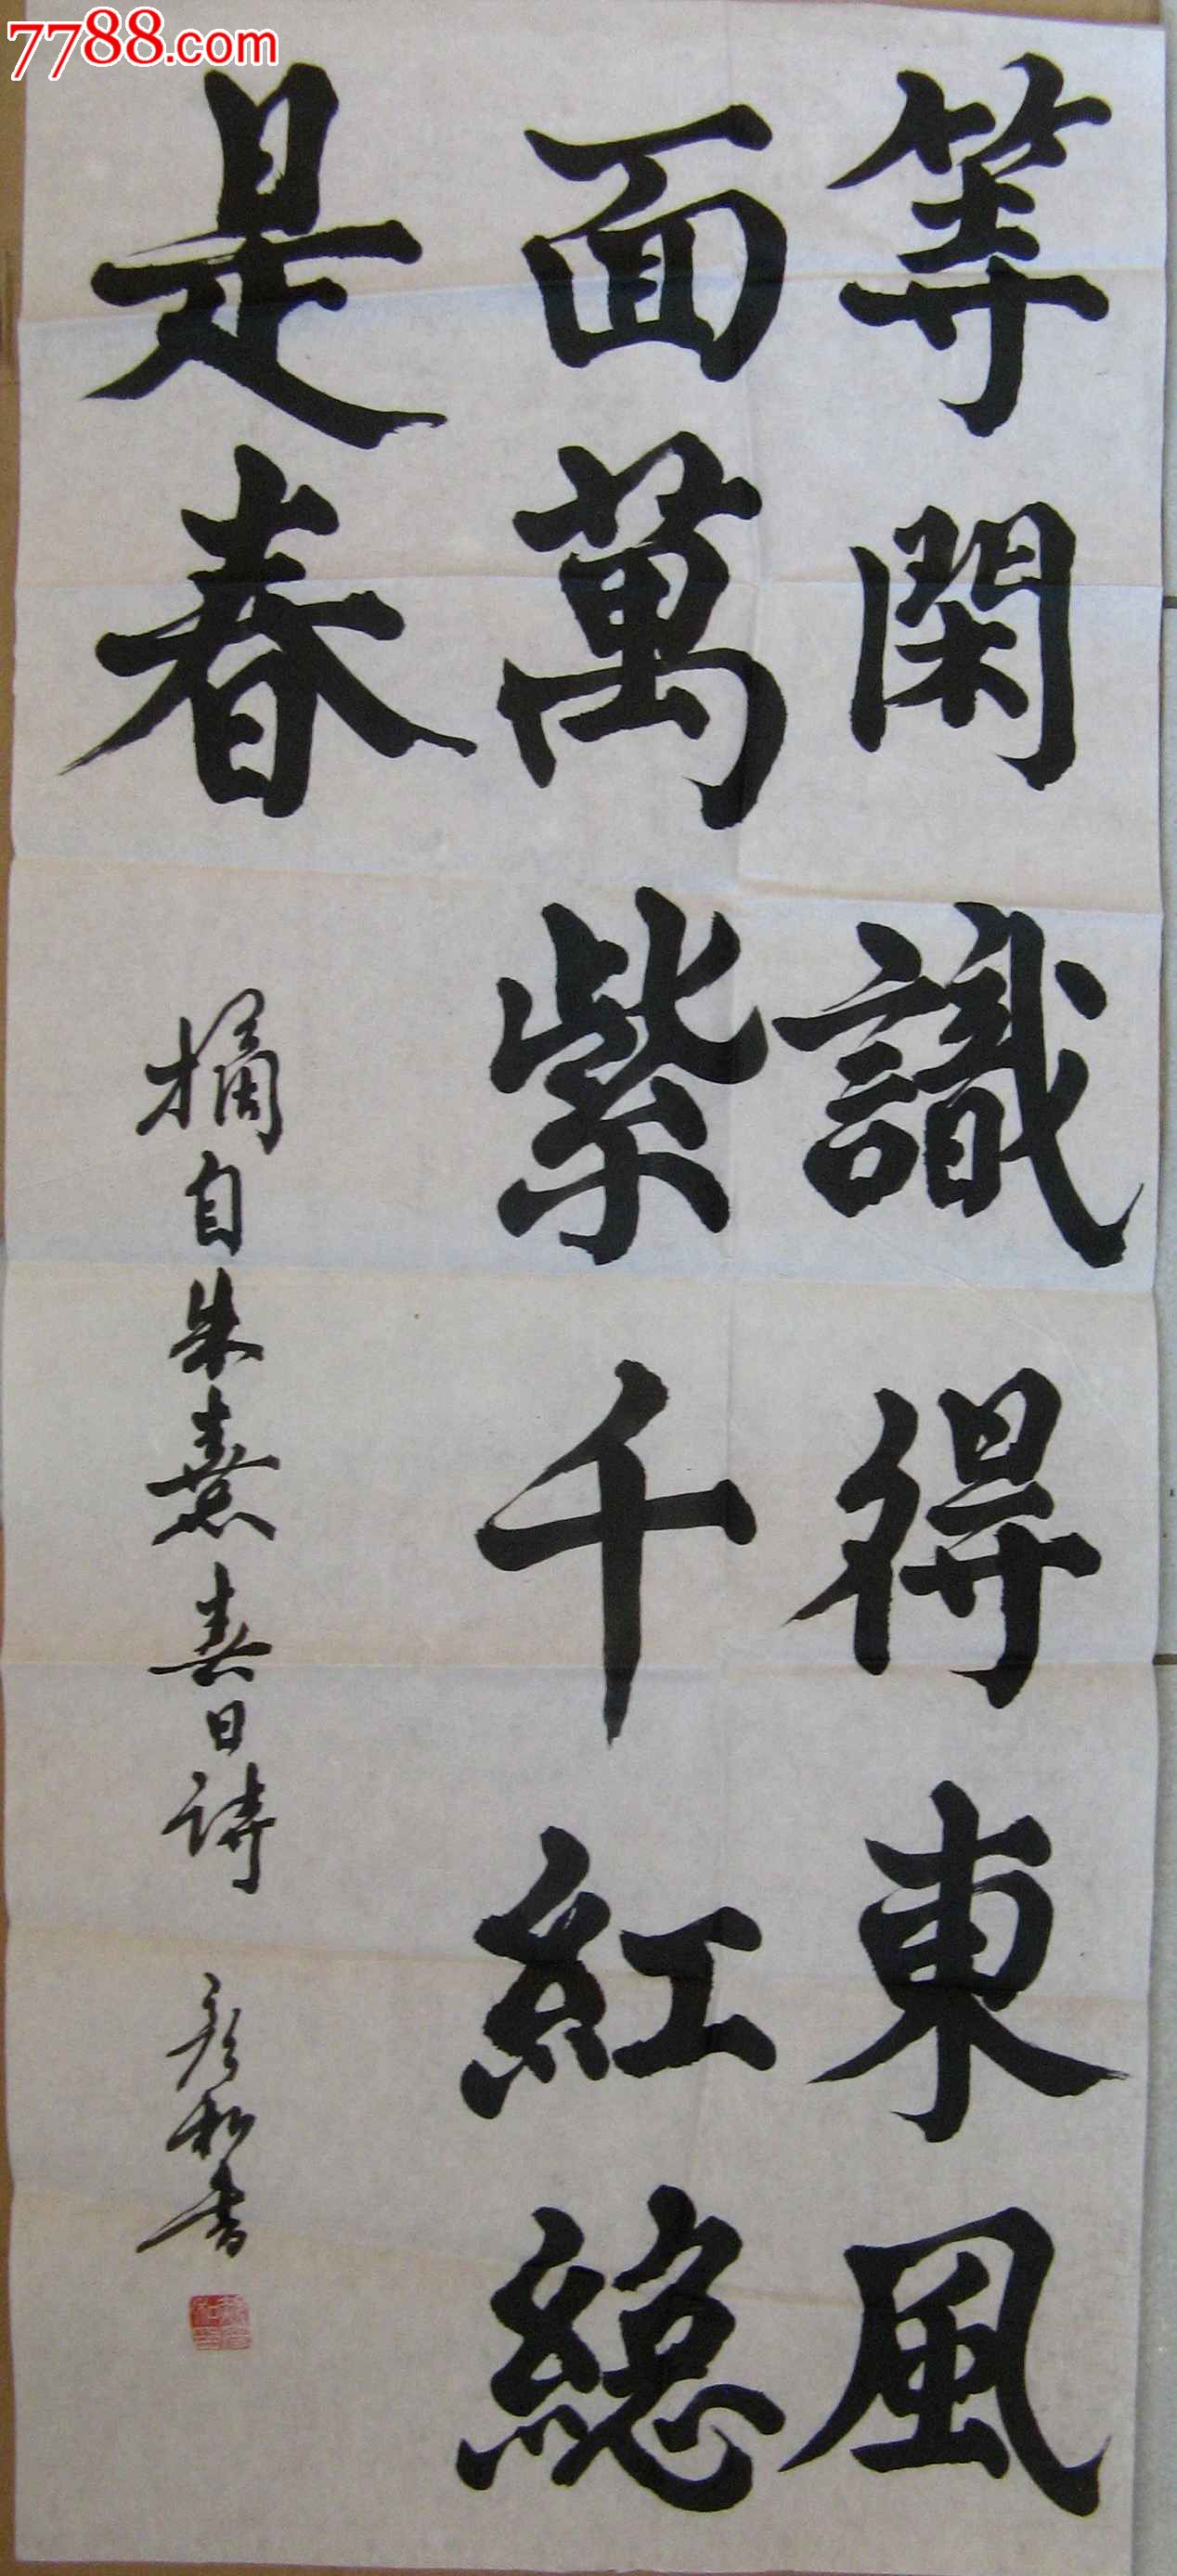 7788.com
等閑識得東風
面萬紫千紅總
是春
摘自朱熹春日詩
彦和書